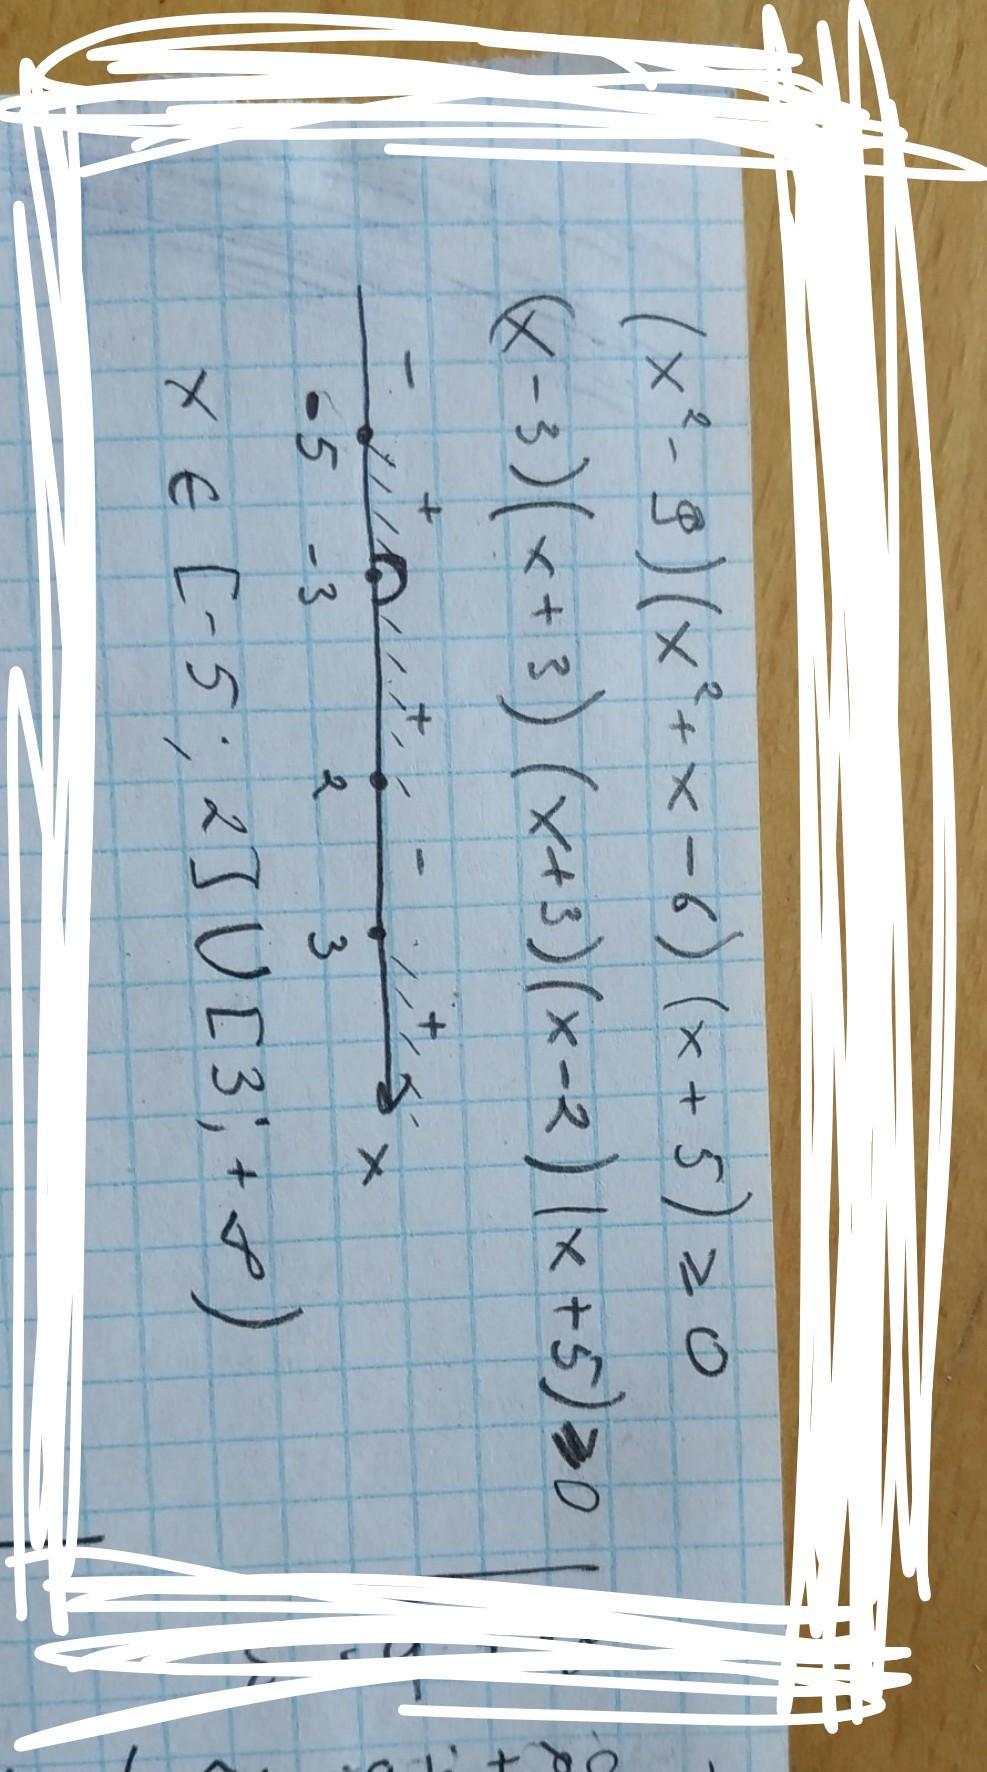 (x²-9)(x²+x-6)(x+5)≥0
(x-3)(x+3)(x+3)(x-2)(x+5)≥0
- + + - +
-5 -3 2 3 x
x ∈ [-5; 2] U [3; +∞)